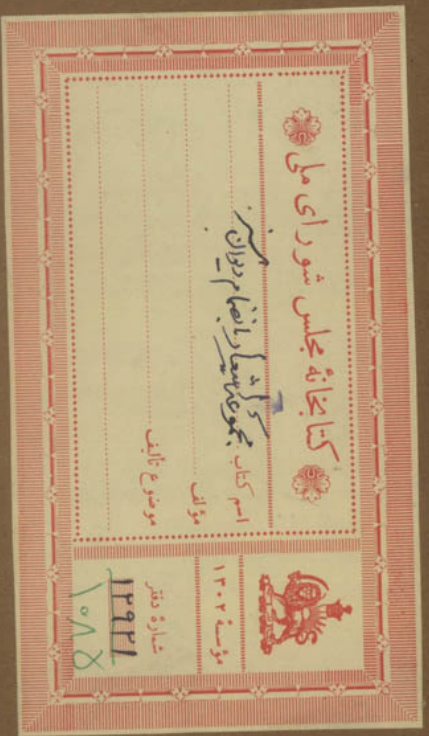 کتابخانهٔ مجلس شورای ملی
اسم کتاب مجموعه اشعار بانضمام دیوان
مؤلف
موضوع تألیف
مؤسسهٔ ۱۳۰۲
شمارهٔ دفتر
۱۲۹۲۱
۱۰۸۵